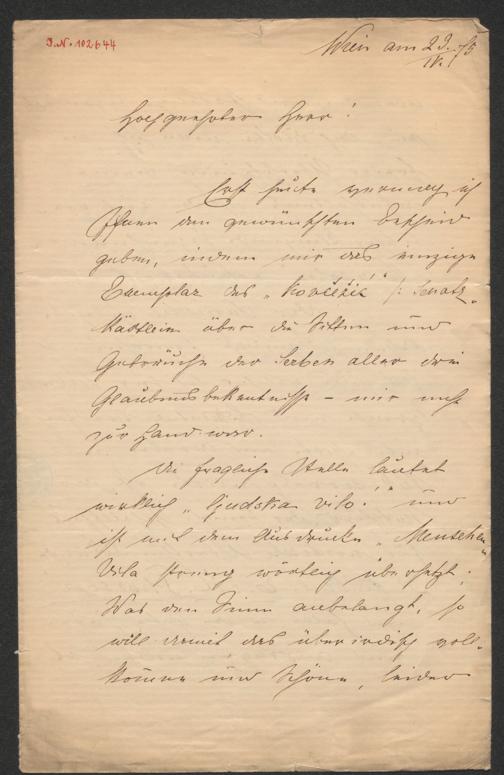 J.N. 102644
Wien am 23./IV. 75
Hochgeehrter Herr!
Erst heute vermag ich
Ihnen den gewünschten Bescheid
geben, indem mir das einzige
Exemplar des „Kovčežić" /: Schatz-
kästlein über die Sitten und
Gebräuche der Serben aller drei
Glaubensbekentnisse – mir nicht
zur Hand war.
Die fragliche Stelle lautet
wirklich „ljudska vilo!" und
ist mit dem Ausdrucke „Menschen
Vila streng wörtlich übersetzt.
Was den Sinn anbelangt, so
will damit das überirdisch voll-
kom̄ene und Schöne, leider